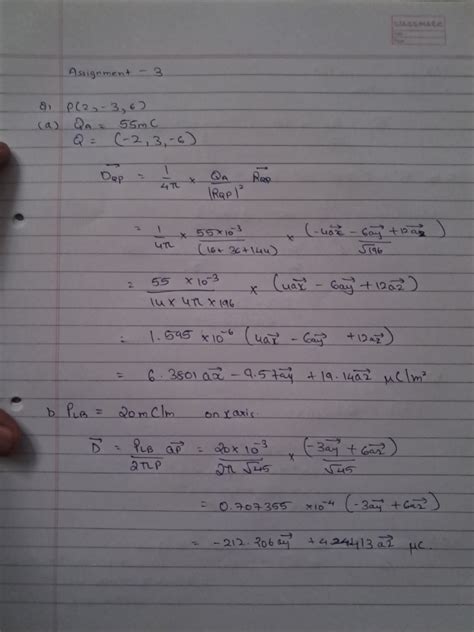 classmate
Assignment - 3
Q1 P(2,-3,6)
(a) QA = 55mC
Q = (-2,3,-6)
D⃗QP = 1/4π × QA/|RQP|² R⃗QP
= 1/4π × 55×10⁻³/(16+36+144) × (-4ax⃗ - 6ay⃗ + 12az⃗)/√196
= 55 ×10⁻³/14×4π×196 × (4ax⃗ - 6ay⃗ + 12az⃗)
= 1.595 ×10⁻⁶ (4ax⃗ - 6ay⃗ + 12az⃗)
= 6.3801 ax⃗ - 9.57ay⃗ + 19.14az⃗ μC/m²
b. ρLB = 20mC/m on x axis.
D⃗ = ρLB/2πρ aρ⃗ = 20×10⁻³/2π√45 × (-3ay⃗ + 6az⃗)/√45
= 0.707355 ×10⁻⁴ (-3ay⃗ + 6az⃗)
= -212.206ay⃗ + 424.413az⃗ μC.